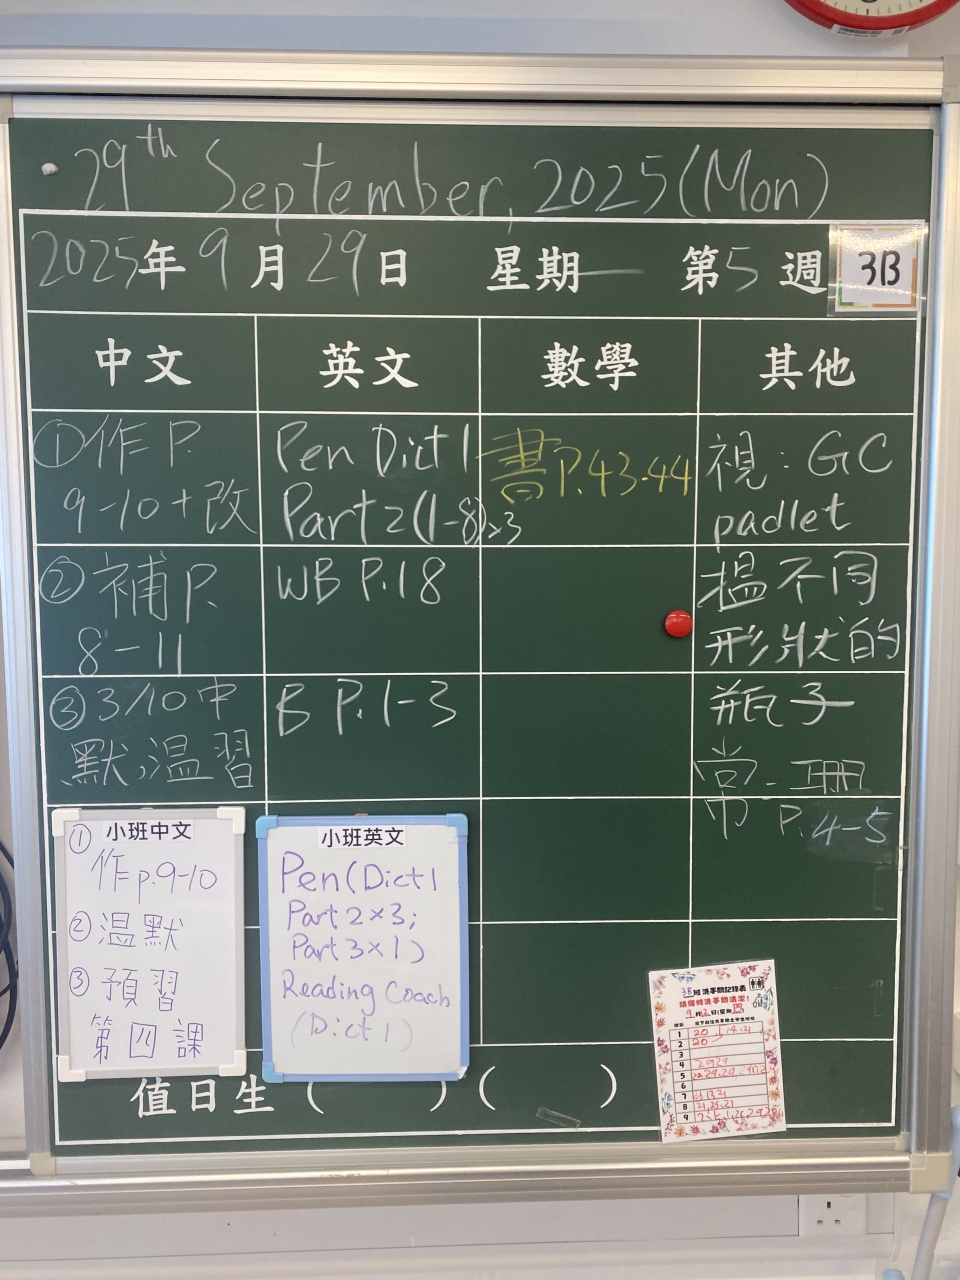 29th September, 2025 (Mon)
2025年9月29日 星期一 第5週 3B
中文
①作P.
9-10+改
②補P.
8-11
③3/10中
默,溫習
英文
Pen Dict 1
Part 2 (1-8)×3
WB P.18
B P.1-3
數學
書P.43-44
其他
視:GC
padlet
搵不同
形狀的
瓶子
常-冊
P.4-5
小班中文
①
作p.9-10
②溫默
③預習
第四課
小班英文
Pen(Dict 1
Part 2×3;
Part 3×1)
Reading Coach
(Dict 1)
值日生( )( )
3B班洗手間記錄表
請保持洗手間清潔!
1
2 20
3
4 29 29
5
6
7
8 21,25,21
9